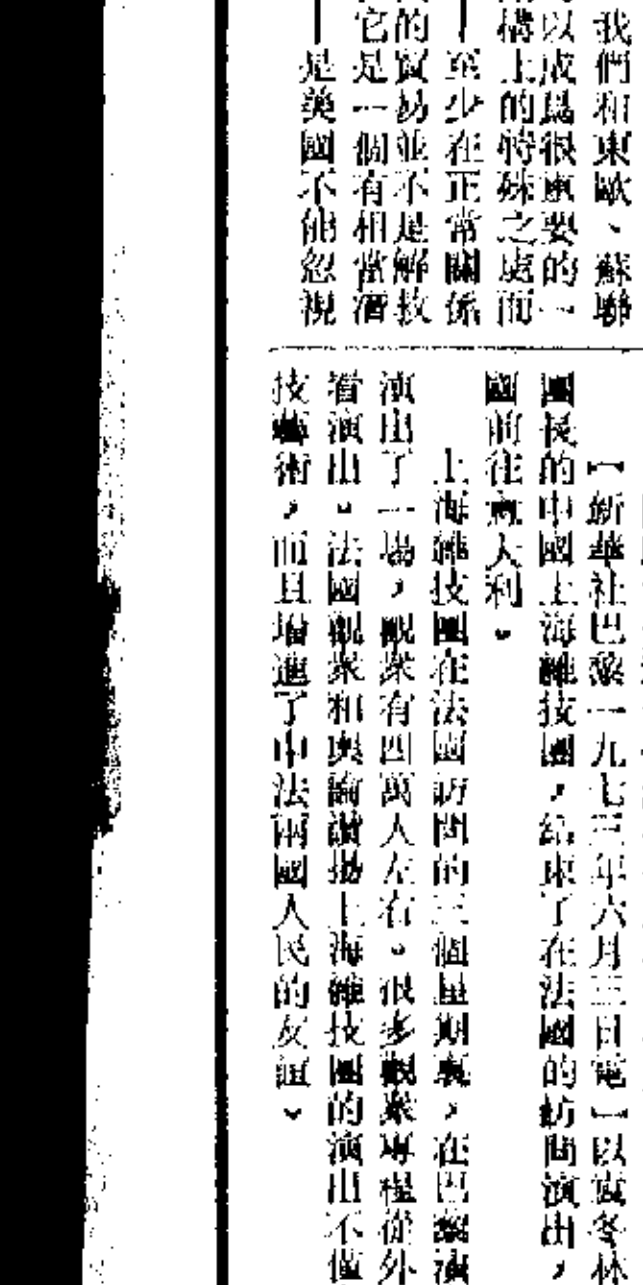 我們和東歐、蘇聯
以成爲很重要的一
構上的特殊之處而
至少在正常關係
的貿易並不是解放
它是一個有相當酒
是美國不能忽視
【新華社巴黎一九七三年六月三日電】以寅冬林
團長的中國上海雜技團，結束了在法國的訪問演出，
國前往意大利。
上海雜技團在法國訪問的三個星期裏，在巴黎演
演出了一場，觀衆有四萬人左右。很多觀衆專程從外
看演出。法國觀衆和輿論讚揚上海雜技團的演出不僅
技藝術，而且增進了中法兩國人民的友誼。